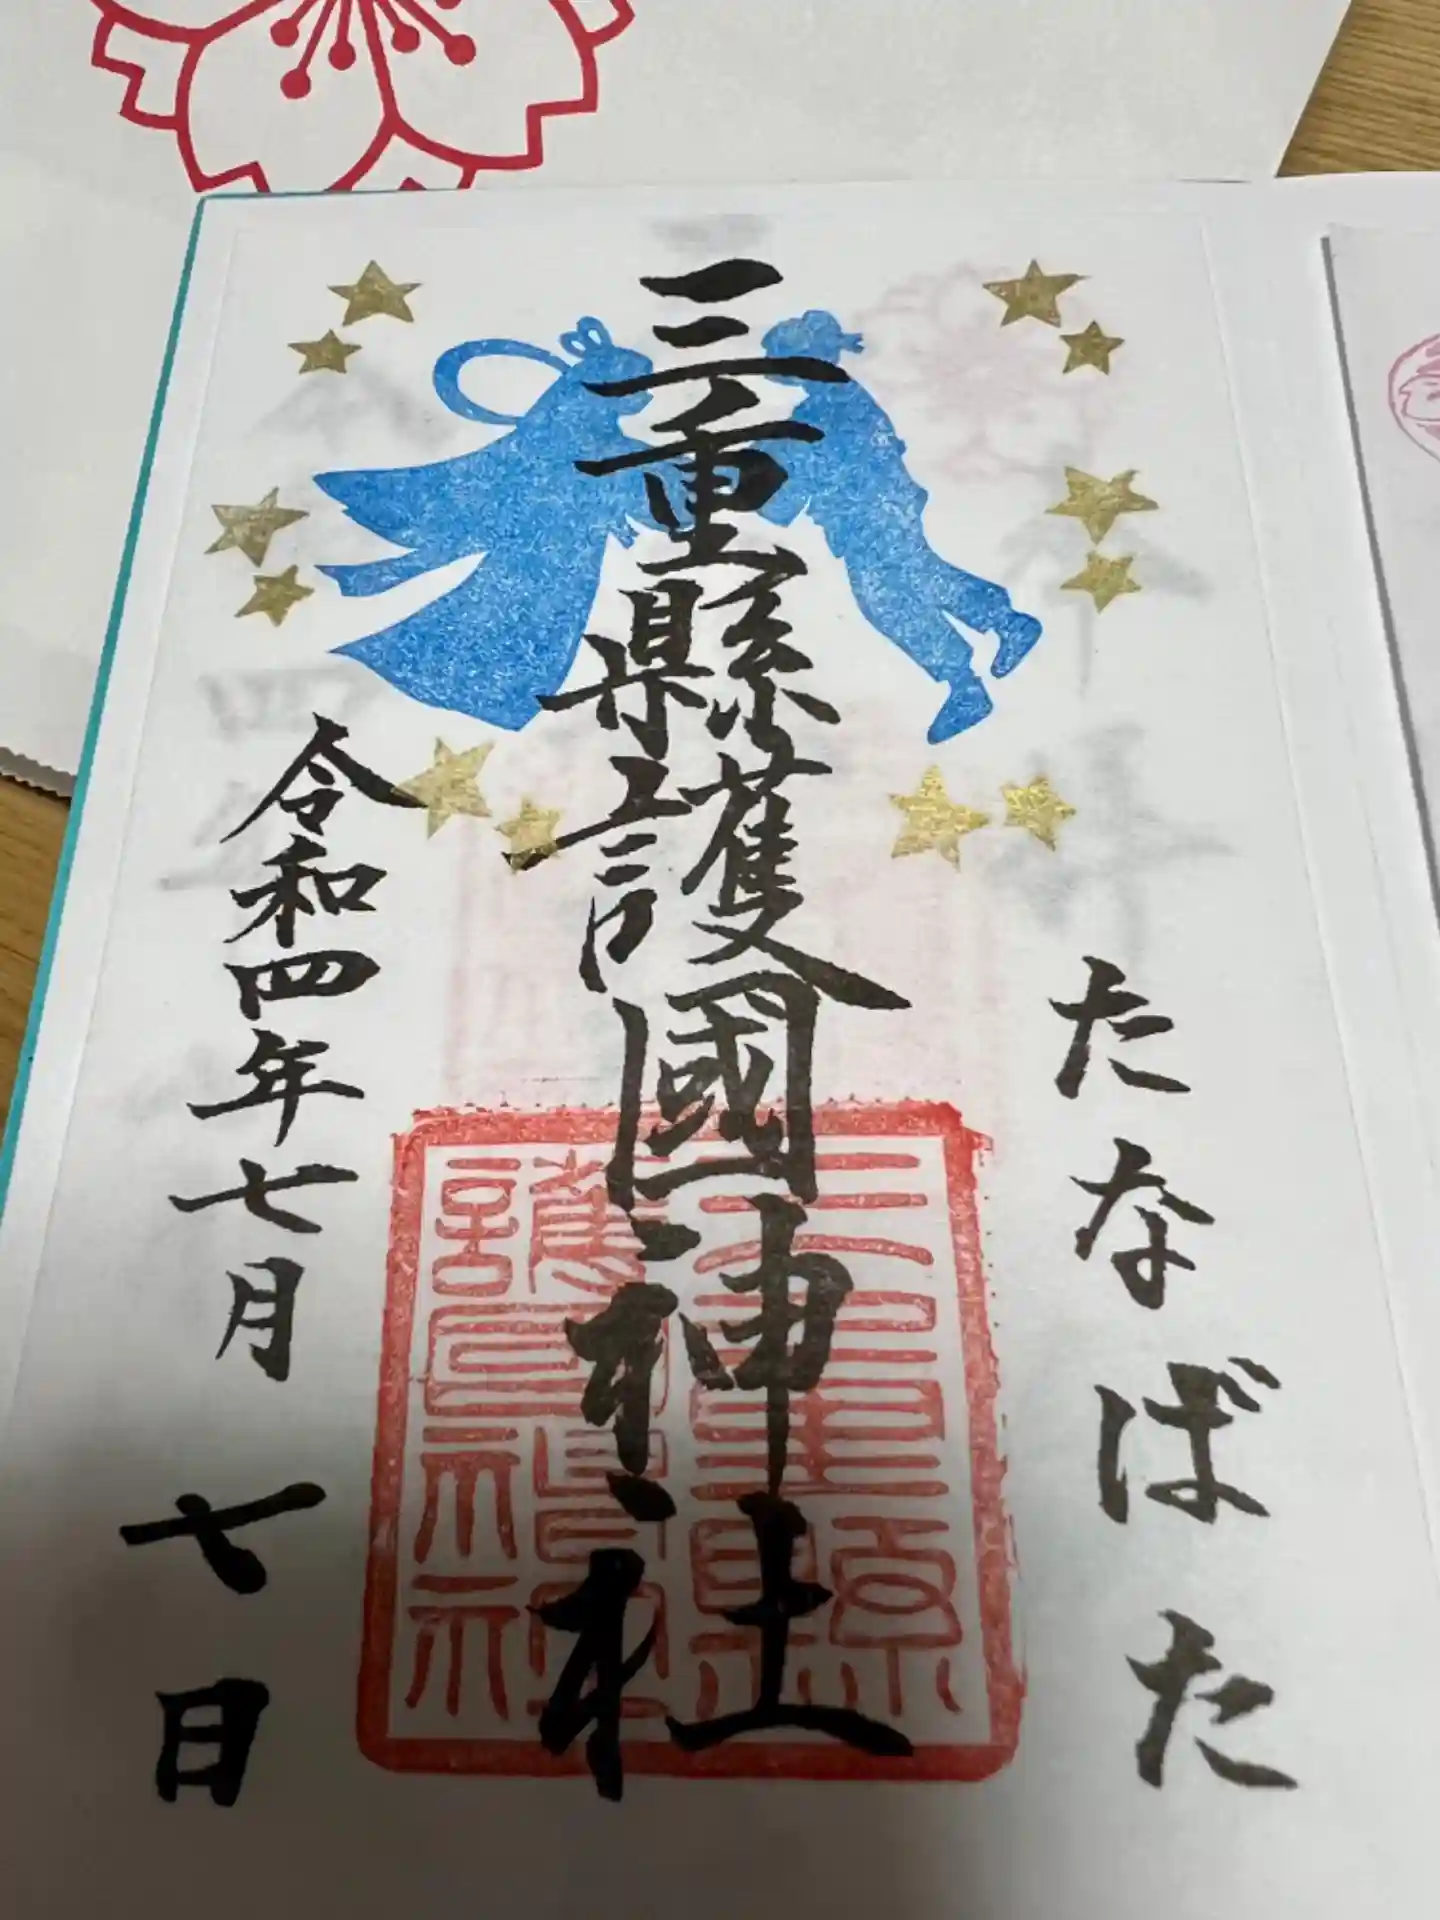 たなばた
三重縣護國神社
三重縣
護國神社
令和四年七月七日